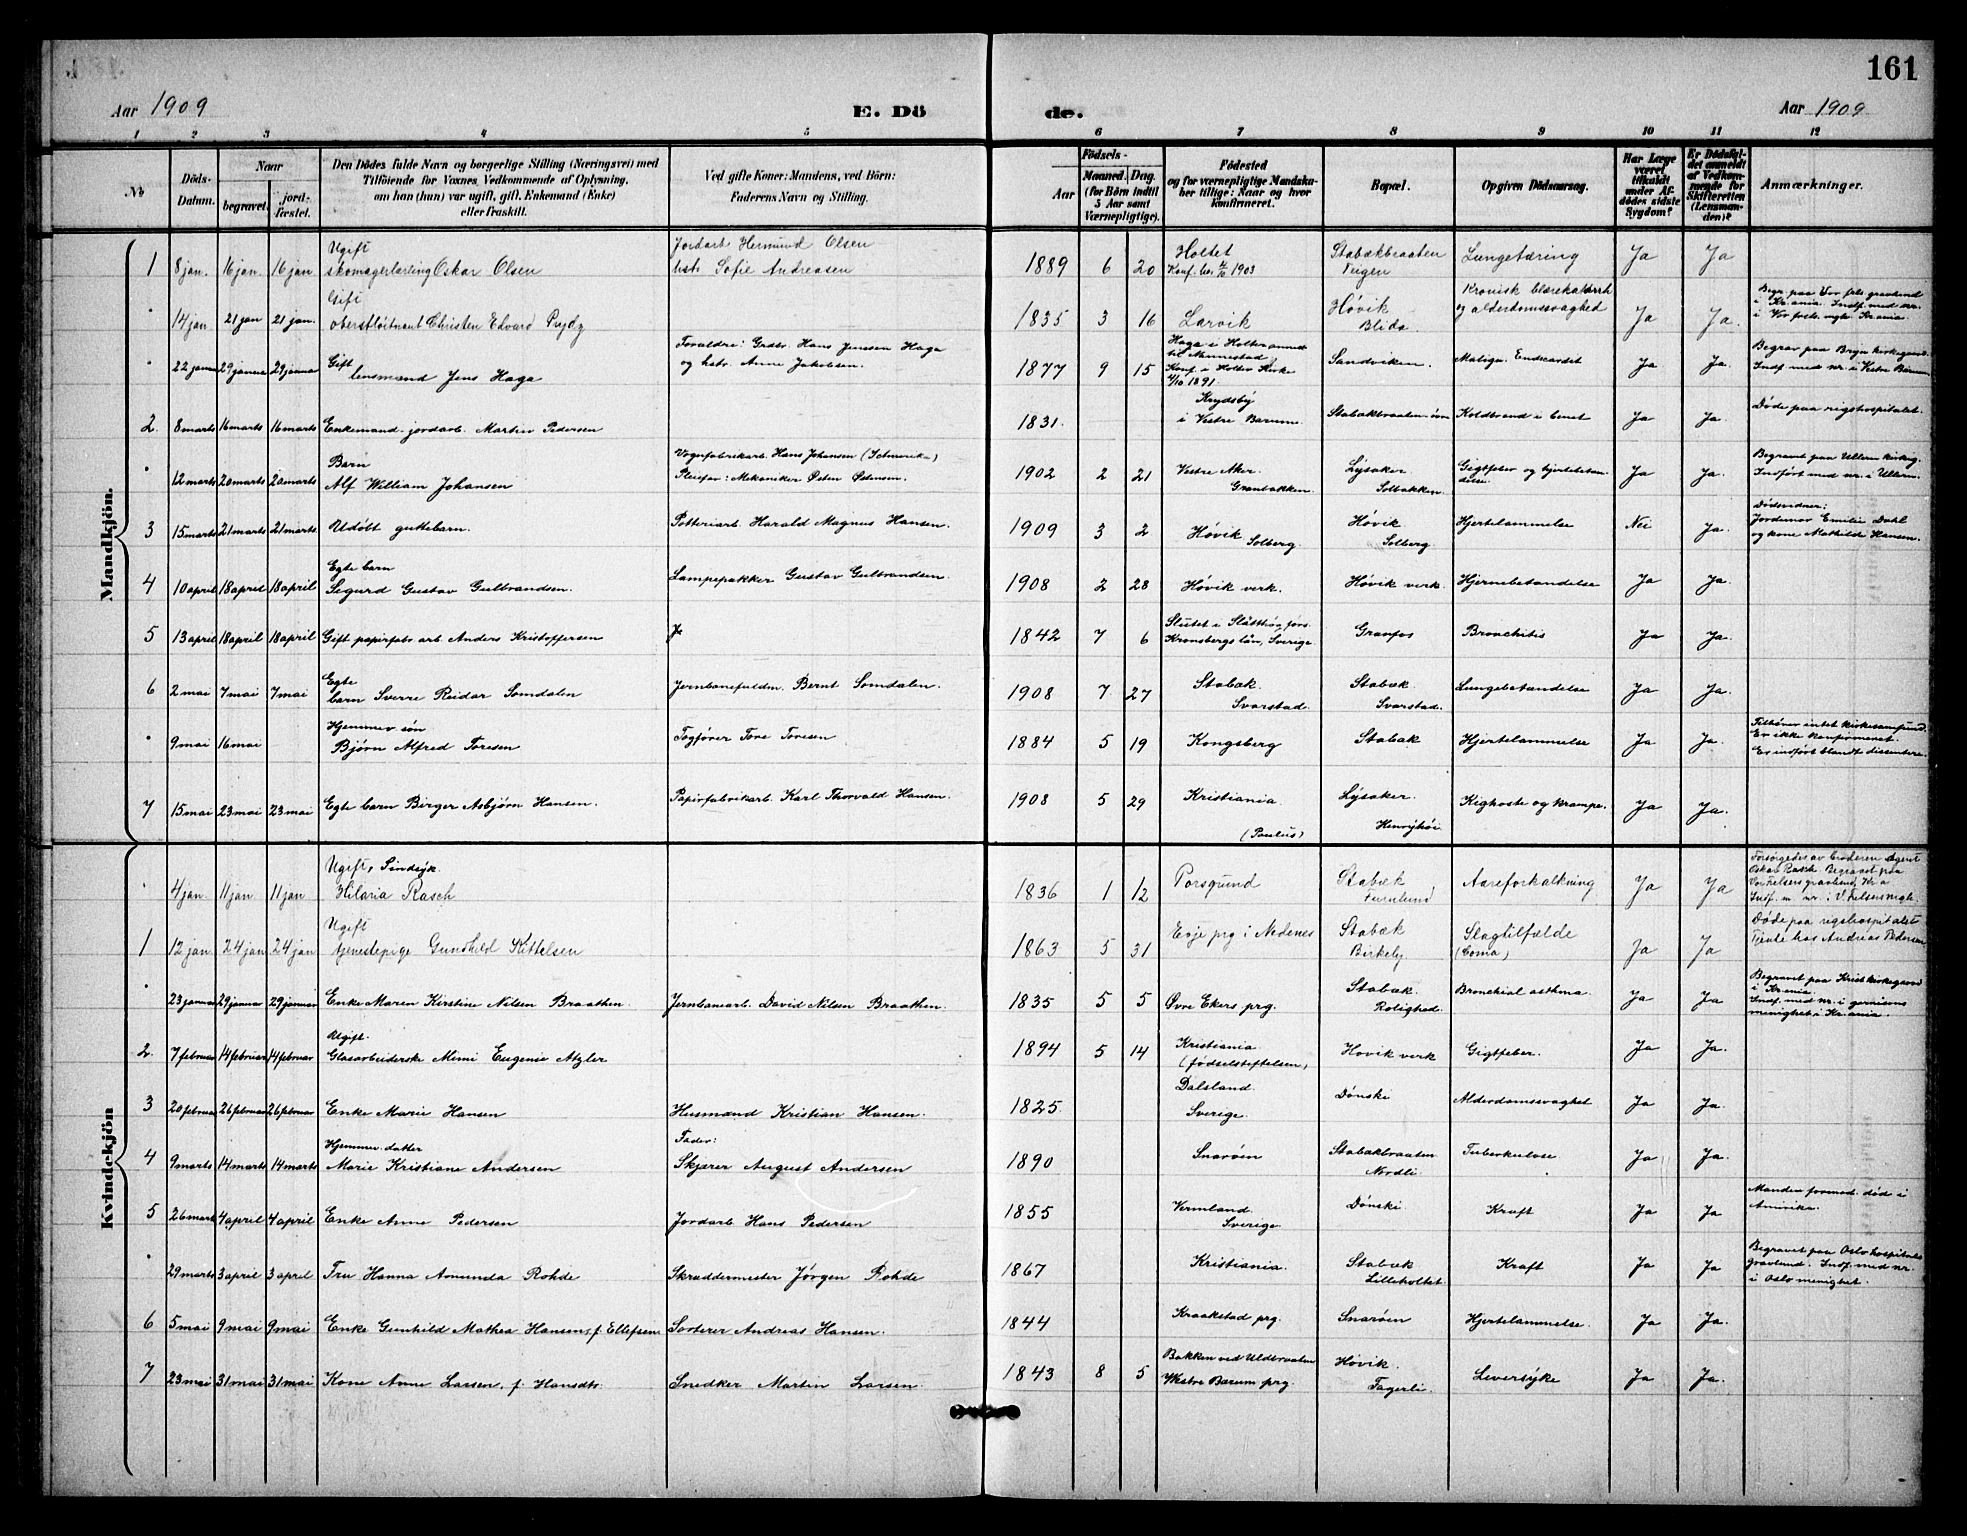 161
Aar 1909
E. Dö
de.
Aar 1909
1 2 3 4 5 6 7 8 9 10 11 12
No
Döds-Datum.
Naar
begravet.
jord-fæstet.
Den Dödes fulde Navn og borgerlige Stilling (Næringsvei) med
Tilföiende for Voxnes Vedkommende af Oplysning,
om han (hun) var ugift, gift, Enkemand (Enke)
eller fraskilt.
Ved gifte Koner: Mandens, ved Börn:
Faderens Navn og Stilling.
Födsels-
Aar
Maaned. Dag.
(for Börn indtil
5 Aar samt
Værnepligtige).
Födested
og for værnepligtige Mandska-
ber tillige: Naar og hvor
konfirmeret.
Bopæl.
Opgiven Dödsaarsag.
Har Læge
været
tilkaldt
under Af-
dödes sidste
Sygdom?
Er Dödsfal-
det anmeldt
af Vedkom-
mende for
Skifteretten
(Lensman-
den)?
Anmærkninger.
Mandkjön.
1 8 jan. 16 jan. 16 jan Ugift skomagerlærling Oskar Olsen Jordarb Hermund Olsen hstr Sofie Andreasen 1889 6 20 Holtet Konf. 1903 Stabækbraaten Lungetæring Ja Ja
" 14 jan 21 jan 21 jan. Gift oberstløitnant Christen Edvard 1835 3 16 Larvik Høvik Blida Kronisk blærekatarrh og alderdomssvaghed Ja Ja. Begr. paa Vor frels. gravlund i Kr.ania. Indf. med nr. i Vor frels. mgh. Kr.ania.
" 22 januar 29 januar 29 januar Gift lensmand Jens Haga Forældre: Grdbr. Hans Jensen Haga og hstr. Anne Jakobsen. 1877 9 15 Haga i Holter Konf. i Holter Kirke 1891. Sandviken. Malign Endocardit Ja Ja. Begrav. paa Bryn kirkegaard. Indf. med nr. i Vestre Bærum
2. 8 marts 16 marts 16 marts Enkemand jordarb. Martin Pedersen 1831. Krydsby i Vestre Bærum Stabækbraaten Koldbrand i benet Ja Ja. Døde paa rigshospitalet.
" 12 marts 20 marts 20 marts Barn Alf William Johansen Vognfabrikarb. Hans Johansen (I Amerika) Pleiefar: Mekaniker 1902 2 21 Vestre Aker. Granbakken. Lysaker Solbakken. Gigtfeber og hjertebetændelse Ja Ja. Begravet paa Ullern kirkeg. Indført med nr. i Ullern.
3 15 marts 21 marts 21 marts. Udøbt guttebarn. Potteriarb. Harald Magnus Hansen. 1909 3 2 Høvik Solberg. Høvik Solberg Hjertelammelse Nei Ja. Dødsvidner: Jordmor Emilie Dahl og kone Mathilde Hansen.
4 10 april 18 april 18 april Egte barn Sigurd Gustav Gulbrandsen. Lampepakker Gustav Gulbrandsen. 1908 2 28 Høvik verk. Høvik verk. Hjernebetændelse Ja Ja.
5 13 april 18 april 18 april Gift papirfabr arb Anders Kristoffersen Ja 1842 7 6 Slätthög förs. Kronobergs län, Sverige Granfos Bronchitis Ja Ja.
6 2 mai 7 mai 7 mai Egte barn Sverre Reidar Somdalen Jernbanefuldm. Bernt Somdalen. 1908 7 27 Stabæk. Svarstad. Stabæk. Svarstad. Lungebetændelse Ja Ja.
" 9 mai 16 mai Hjemmev søn Bjørn Alfred Toresen Togfører Tore Toresen 1884 5 19 Kongsberg Stabæk Hjertelammelse Ja Ja. Tilhører intet kirkesamfund. Er ikke konfirmeret. Er indført blandt dissentere.
7 15 mai 23 mai 23 mai Egte barn Birger Asbjørn Hansen. Papirfabrikarb. Karl Thorvald Hansen. 1908 5 29 Kristiania (Paulus) Lysaker. Kighoste og krampe. Ja Ja.
Kvindekjön
" 4 jan. 11 jan 11 jan Ugift, Sindsyk. Hilaria Rasch 1836 1 12 Porsgrund Stabæk Furulund Aareforkalkning Ja Ja Forsørgedes av broderen agent Oskar Rasch. Begravet paa Vor Frelsers gravlund, Kr.a Indf. m. nr. i V. Frelsers mgh.
1 12 jan. 24 jan 24 jan Ugift tjenestepige Gunhild Kittelsen 1863 5 31 Evje prg i Nedenes Stabæk Birkeby Slagtilfælde (Coma) Ja Ja Døde paa rigshospitalet Tjente hos Andreas Pedersen
" 23 januar 29 januar 29 januar Enke Maren Kirstine Nilsen Braathen. Jernbanearb. David Nilsen Braathen. 1835 5 5 Øvre Ekers prg. Stabæk. Rolighed. Bronchial asthma. Ja Ja Begravet paa Krist kirkegaard i Kr.ania. Indf. med nr. i garnisons menighet i Kr.ania.
2. 7 februar 14 februar 14 februar Ugift. Glasarbeiderske Mimi Eugenie Atzler 1894 5 14 Kristiania (fødselsstiftelsen) Høvik verk Gigtfeber. Ja Ja.
3 20 februar 26 februar 26 februar Enke Marie Hansen Husmand Kristian Hansen. 1825. Dalsland. Sverige. Dønski Alderdomssvaghet Ja Ja.
4 9 marts 14 marts 14 marts Hjemmev. datter Marie Kristiane Andersen Fader: Skjærer August Andersen 1890 Snarøen Stabækbraaten Nordli Tuberkulose Ja Ja.
5 26 marts 4 april 4 april Enke Anne Pedersen Jordarb Hans Pedersen 1855 Vermland. Sverige. Dønski Kræft Ja Ja Manden formod. død i Amerika.
" 29 marts 3 april 3 april Fru Hanna Amunda Rohde Skræddermester Jørgen Rohde 1867 Kristiania. Stabæk Lilleholtet. Kræft Ja Ja Begravet paa Oslo hospitals gravlund. Indf. med nr. i Oslo menighet.
6 5 mai 9 mai 9 mai Enke Gunhild Mathea Hansen, f. Ellefsen Sorterer Andreas Hansen. 1844 Kraakstad prg. Snarøen Hjertelammelse. Ja Ja.
7 23 mai 31 mai 31 mai Kone Anne Larsen, f. Hansdtr. Snedker Martin Larsen. 1843 8 5 Bakken ved Vestre Bærum prg. Høvik. Fagerli. Leversyke Ja Ja.